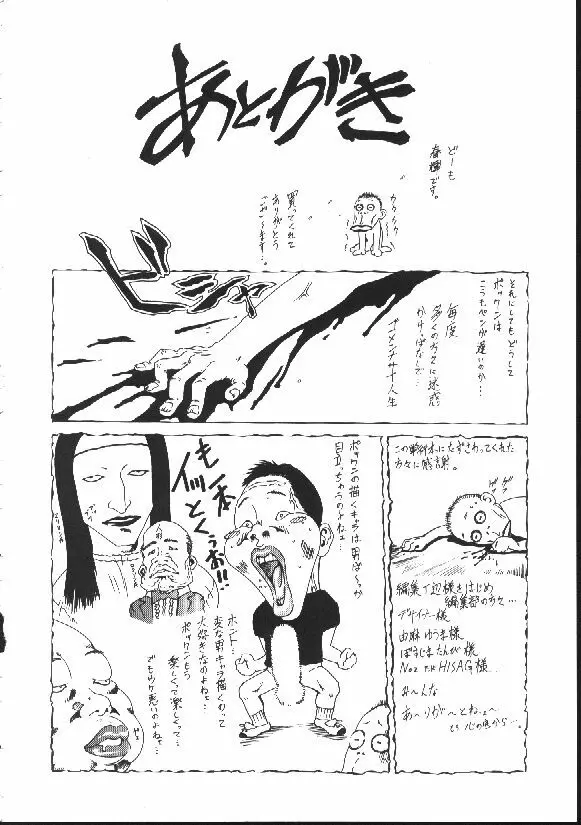 あとがき
どーも
春樹です。
買ってくれて
ありがとう
ございます…。
ガクガク
ドシャ
それにしてもどうして
ボックンは
こうもペンが遅いのか…
毎度
多くの方々に迷惑
かけっぱなしで…
ゴメンナサイ人生
この単行本にたずさわってくれた
方々に感謝。
編集T辺様をはじめ
編集部の方々…
デザイナー様
由麻ゆうま様
ぼうじまたんが様
HISAG様…
み〜んな
あ〜りが〜とね〜
心の底から…。
ボックンの描くキャラは男ばっか
目立っちゃうのよねェ…
もう一本
イッとくぅお!!
ホント…
変な男キャラ描くのって
大好きなのよねェ…
ボックンもう
楽しくって楽しくって…
でもウケ悪いのよねェ…